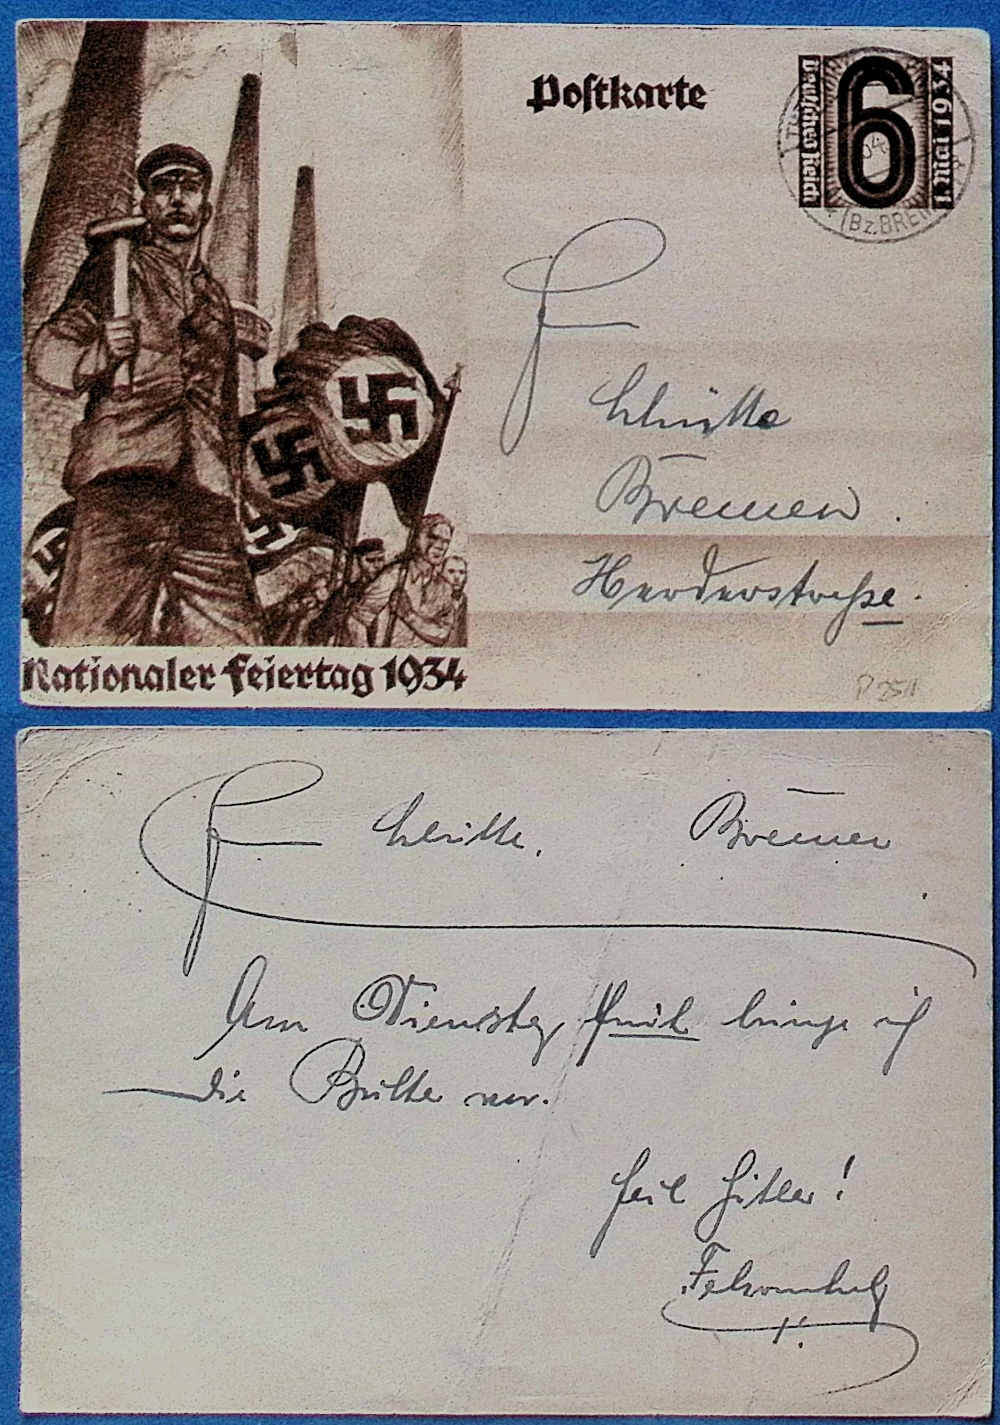 Postkarte
Deutsches Reich
6
1. Mai 1934
(Bz. BREM
Schütte
Bremen.
Herderstraße.
Nationaler Feiertag 1934
P 251
Schütte, Bremen
Am Dienstag früh bringe ich
die Butter
Heil Hitler!